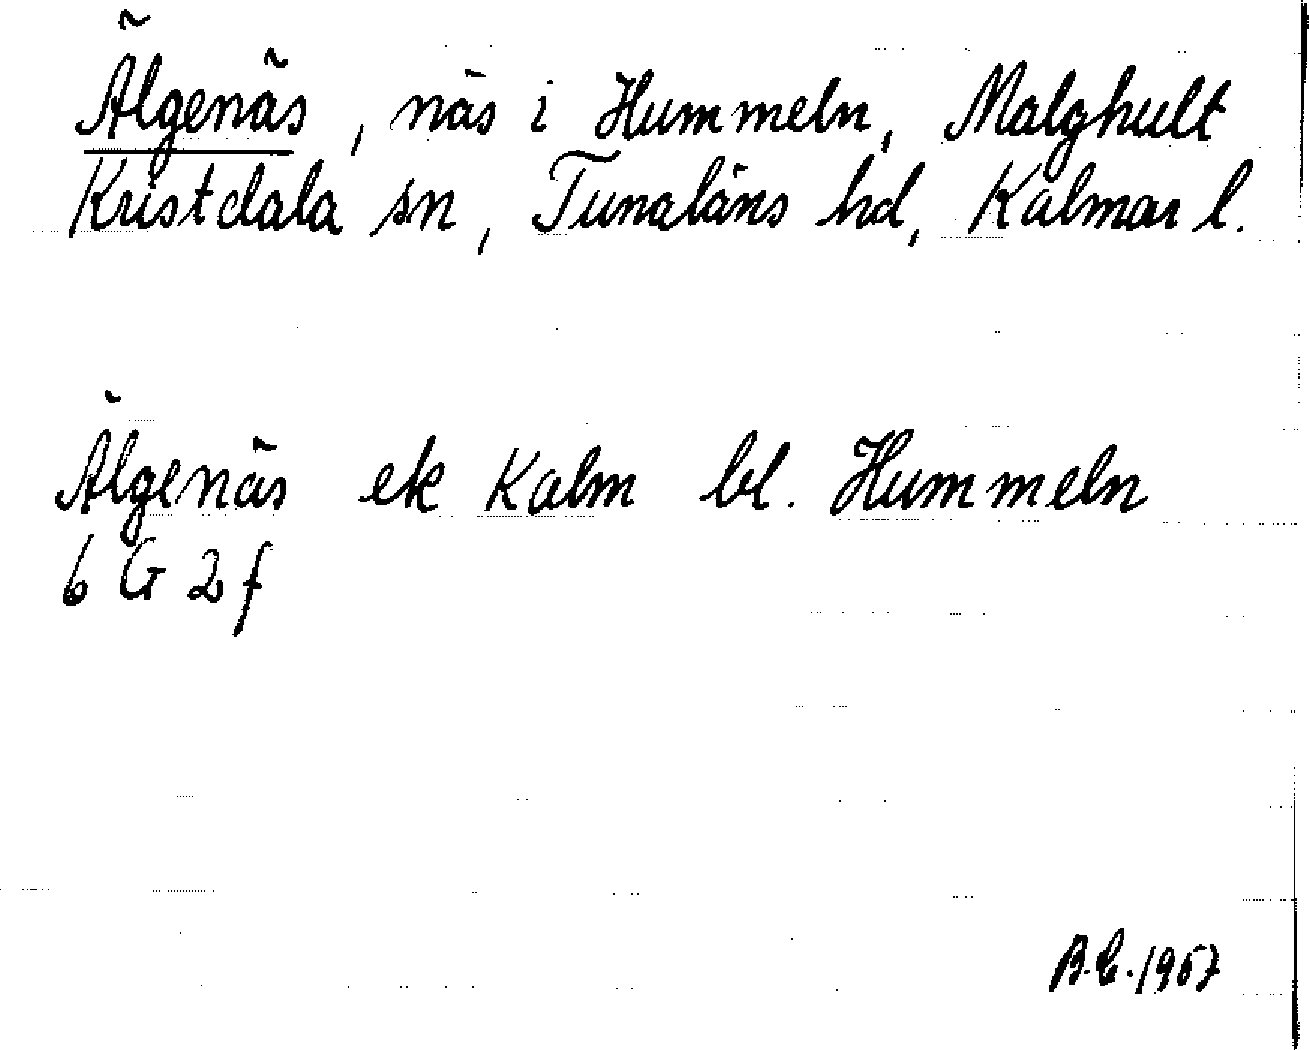 Älgenäs, näs i Hummeln, Malghult
Kristdala sn, Tunaläns hd, Kalmar l.
Älgenäs ek Kalm bl. Hummeln
6 G 2 f